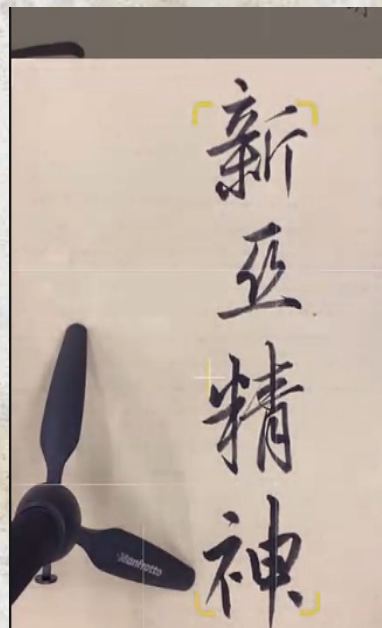 新亞精神
Manfrotto